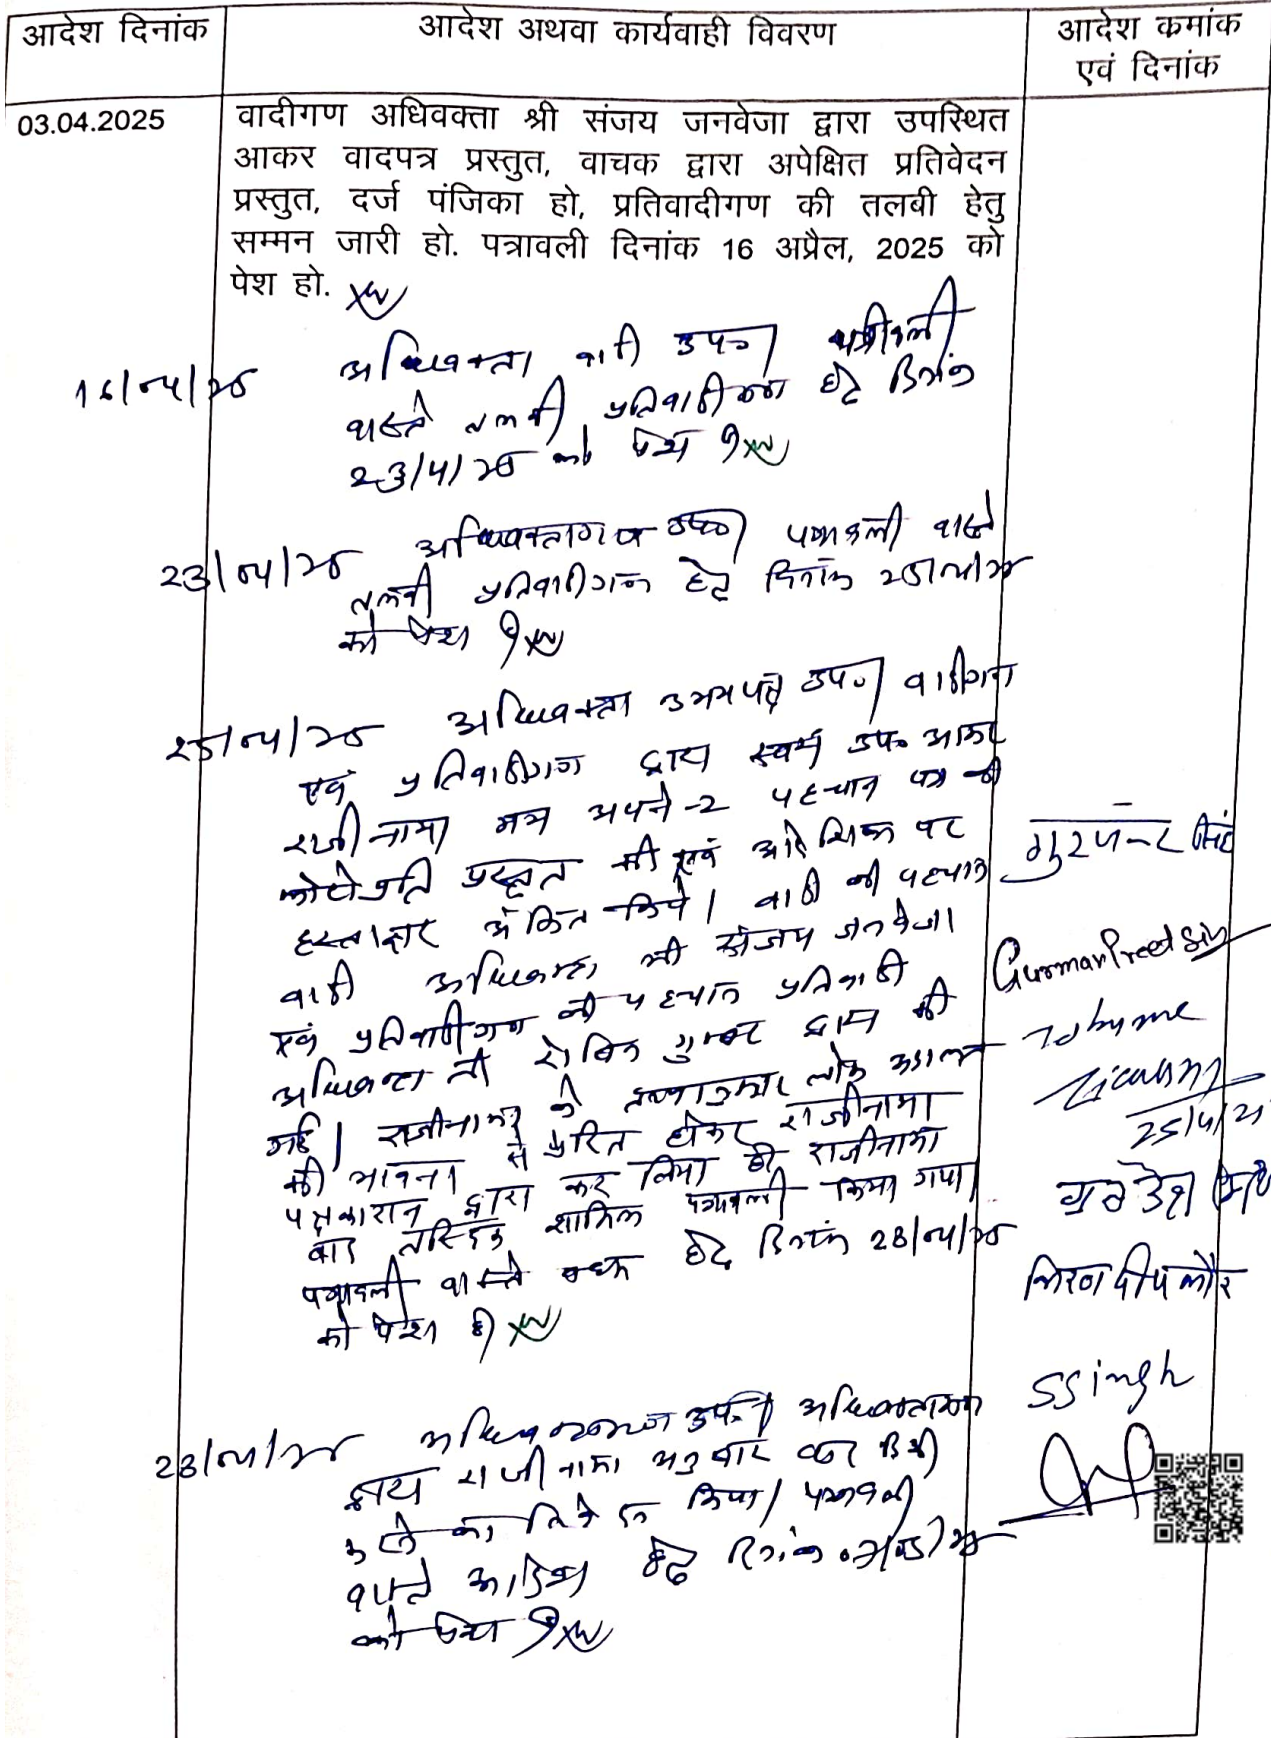 आदेश दिनांक
आदेश अथवा कार्यवाही विवरण
आदेश कमांक
एवं दिनांक
03.04.2025
वादीगण अधिवक्ता श्री संजय जनवेजा द्वारा उपस्थित
आकर वादपत्र प्रस्तुत, वाचक द्वारा अपेक्षित प्रतिवेदन
प्रस्तुत, दर्ज पंजिका हो, प्रतिवादीगण की तलबी हेतु
सम्मन जारी हो. पत्रावली दिनांक 16 अप्रैल, 2025 को
पेश हो.
16/04/25
अधिवक्ता वादी उप० पत्रावली
वास्ते तलबी प्रतिवादीगण हेतु दिनांक
23/4/25 को पेश हो
23/04/25
अधिवक्तागण उप० पत्रावली वास्ते
तलबी प्रतिवादीगण हेतु दिनांक 25/04/25
को पेश हो
25/04/25
अधिवक्ता उभयपक्ष उप० वादीगण
एवं प्रतिवादीगण द्वारा स्वयं उप० आकर
राजीनामा मय अपने-2 पहचान पत्र की
फोटोप्रति प्रस्तुत की एवं आदेशिका पर
हस्ताक्षर अंकित किये। वादी की पहचान
वादी अधिवक्ता श्री संजय जनवेजा
एवं प्रतिवादीगण की पहचान प्रतिवादी
अधिवक्ता श्री रोबिन गुम्बर द्वारा की
गई। राजीनामा के लोक अदालत
की भावना से प्रेरित होकर राजीनामा
पक्षकारान द्वारा कर लिया है राजीनामा
बाद तस्दिक शामिल पत्रावली किया गया।
पत्रावली वास्ते बहस हेतु दिनांक 28/04/25
को पेश हो
गुरजन्ट सिंह
Gurmanpreet Singh
Id by me
25/4/25
गुरदेश सिंह
किरणदीप कौर
S Singh
28/04/25
अधिवक्तागण उप० अधिवक्तागण
द्वारा राजीनामा अनुसार वाद डिक्री
करने का निवेदन किया। पत्रावली
वास्ते आदेश हेतु दिनांक
को पेश हो